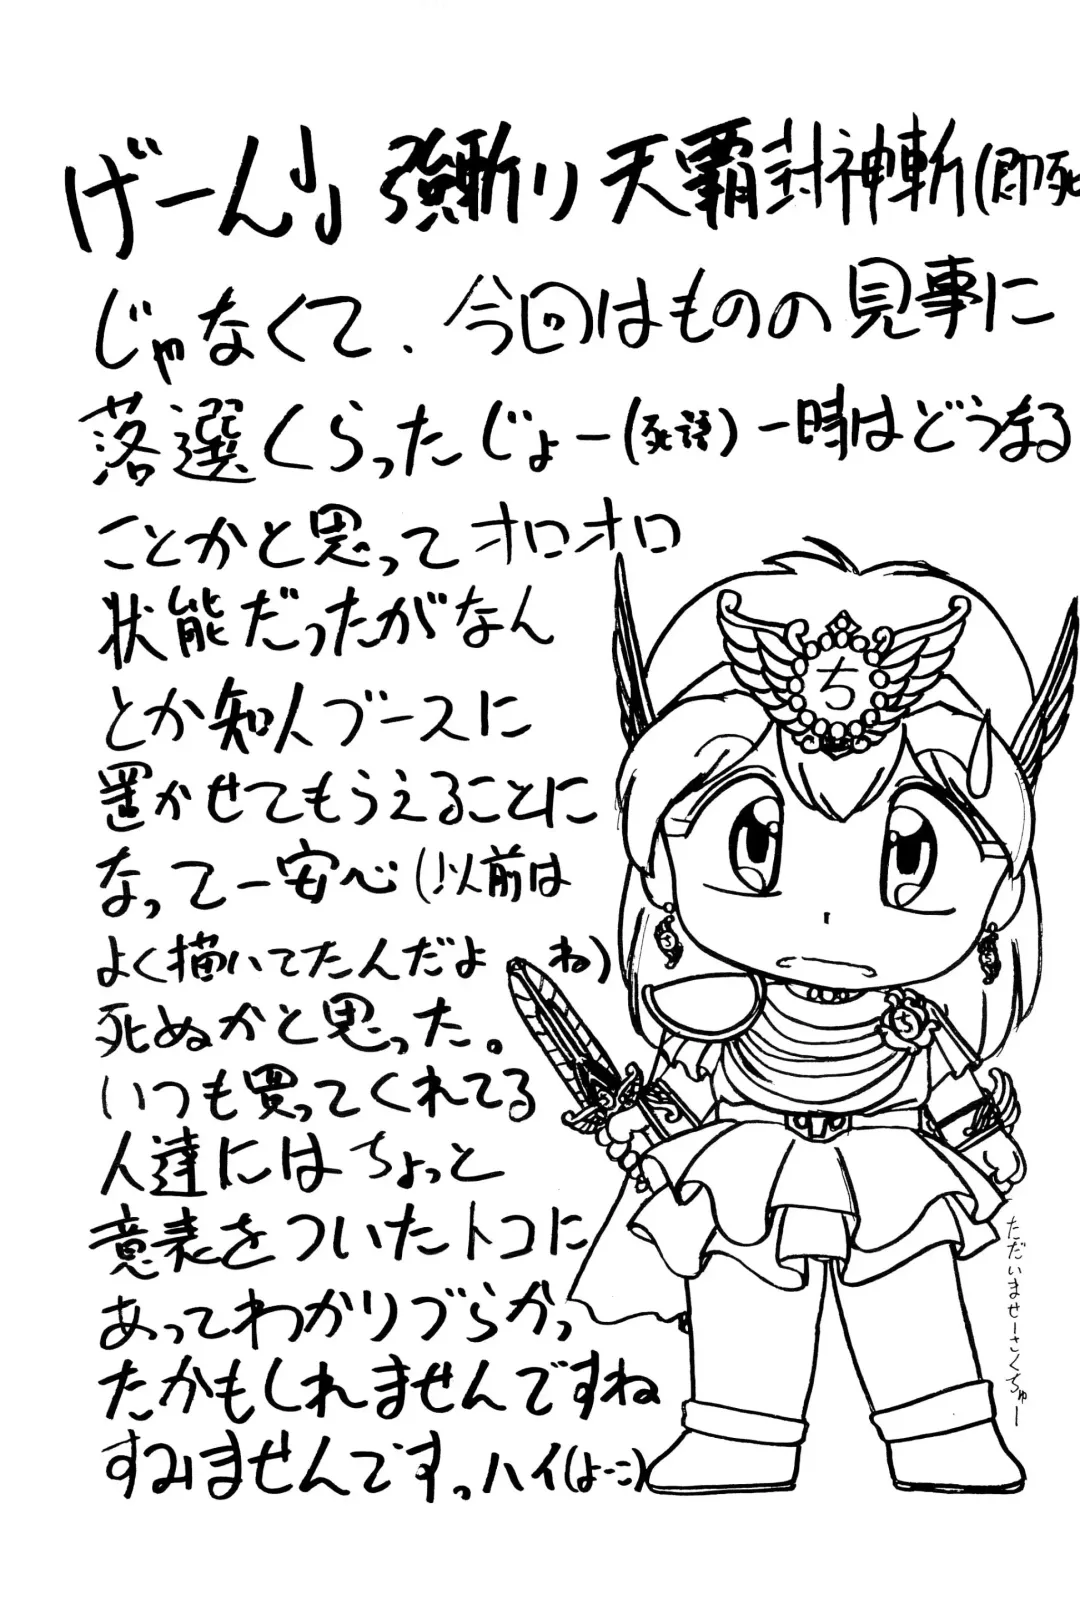 げーん♩♩ 強斬り 天覇封神斬(即死
じゃなくて、今回はものの見事に
落選くらったじょー(死語)一時はどうなる
ことかと思ってオロオロ
状態だったがなん
とか知人ブースに
置かせてもらえることに
なって一安心(以前は
よく描いてたんだよね)
死ぬかと思った。
いつも買ってくれてる
人達にはちょっと
意表をついたトコに
あってわかりづらかっ
たかもしれませんですね
すみませんですっハイ(よーこ)
ち
ち
ただいませーさくちゅー